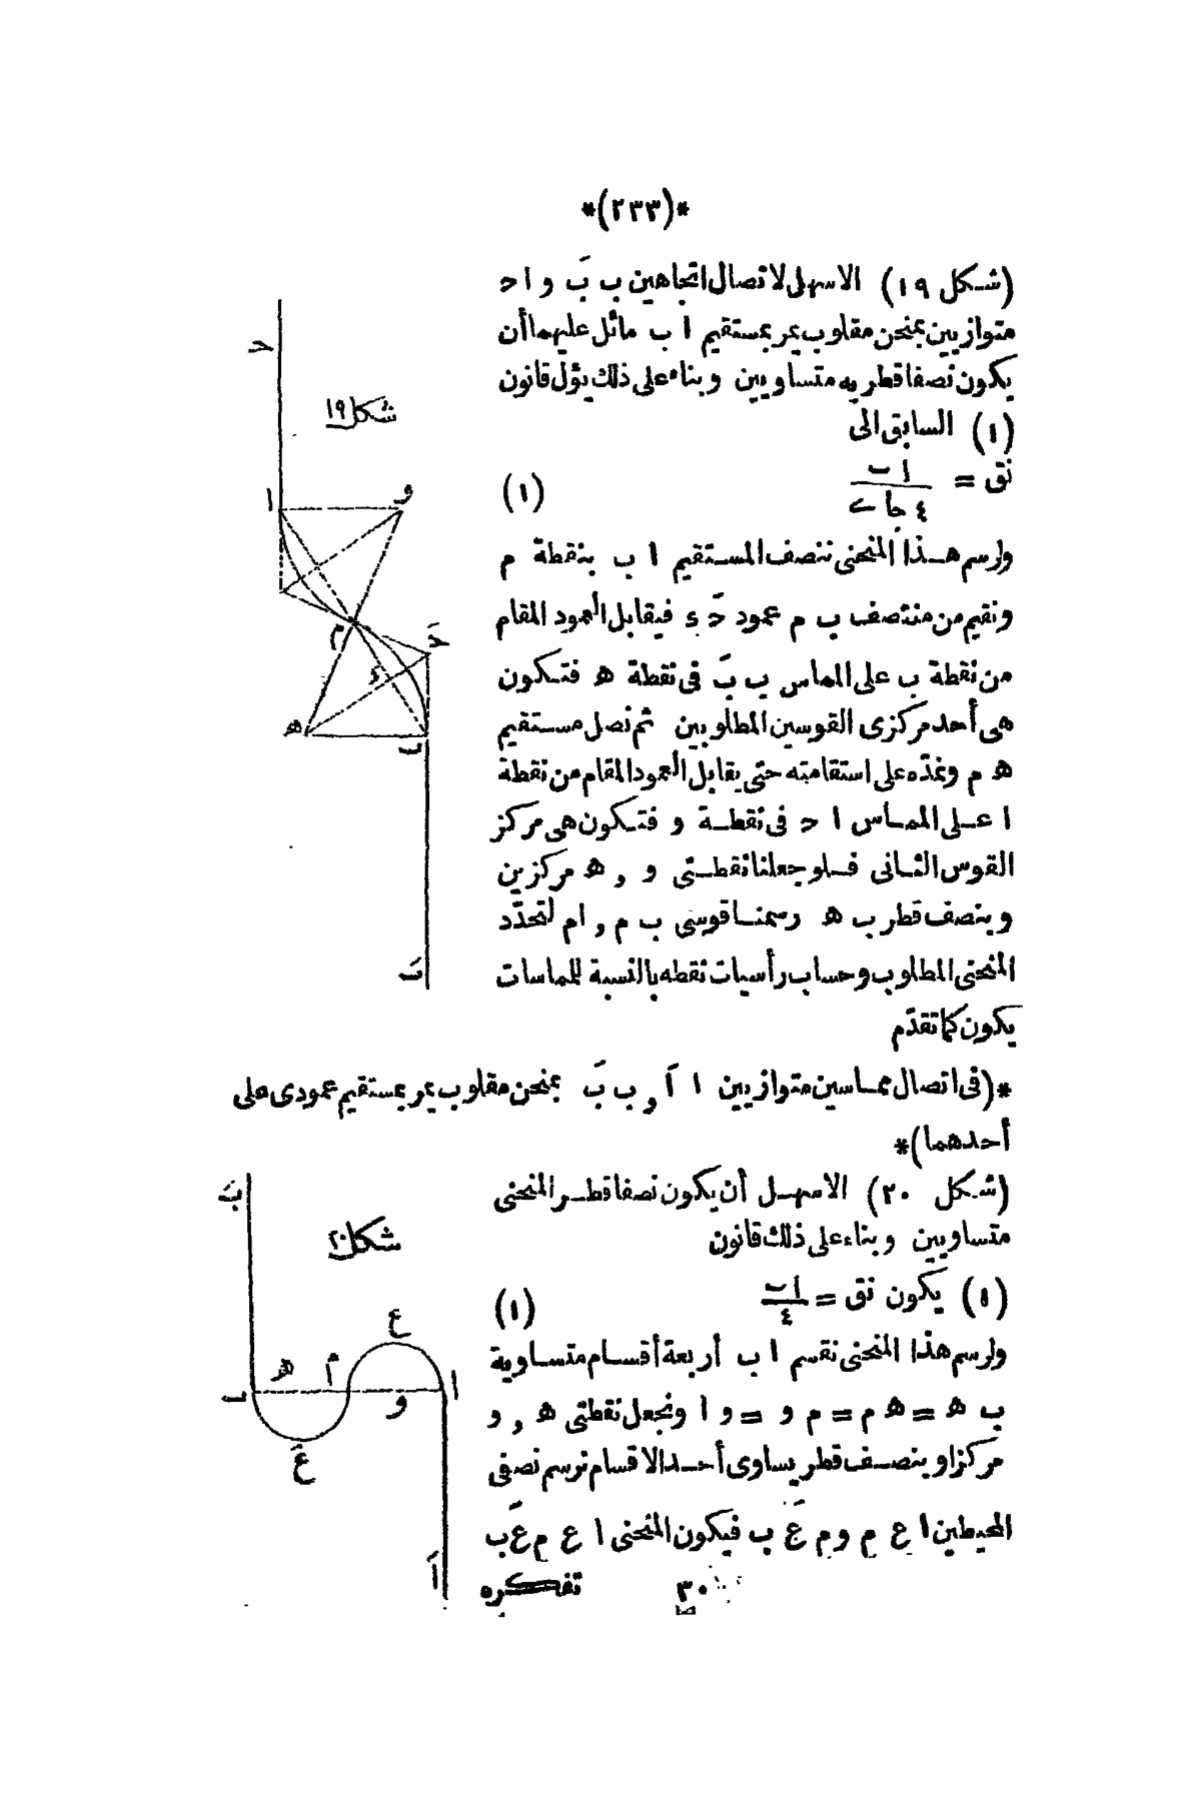 *(٢٣٣)*
(شكل ١٩) الاسهل لاتصال اتجاهين ب بَ و ا ح
متوازيين بمنحن مقلوب يمر بمستقيم ا ب مائل عليهما أن
يكون نصفا قطريه متساويين وبناء على ذلك يؤل قانون
(١) السابق الى
نق = ا ب / ٤ حا ى (١)
ولرسم هذا المنحنى ننصف المستقيم ا ب بنقطة م
ونقيم من منتصف ب م عمود حَ ء فيقابل العمود المقام
من نقطة ب على المماس ب بَ فى نقطة ه فتكون
هى أحد مركزى القوسين المطلوبين ثم نصل مستقيم
ه م ونمدّه على استقامته حتى يقابل العمود المقام من نقطة
ا على المماس ا ح فى نقطة و فتكون هى مركز
القوس الثانى فلو جعلنا نقطتى و , ه مركزين
وبنصف قطر ب ه رسمنا قوسى ب م , ام لتحدّد
المنحنى المطلوب وحساب رأسيات نقطه بالنسبة للماسات
يكون كما تقدّم
*(فى اتصال مماسين متوازيين ا اَ , ب بَ بمنحن مقلوب يمر بمستقيم عمودى على
أحدهما)*
(شكل ٢٠) الاسهل أن يكون نصفا قطر المنحنى
متساويين وبناء على ذلك قانون
(١) يكون نق = ا ب / ٤ (١)
ولرسم هذا المنحنى نقسم ا ب أربعة أقسام متساوية
ب ه = ه م = م و = و ا ونجعل نقطتى ه , و
مركزا وبنصف قطر يساوى أحد الاقسام نرسم نصفى
المحيطين ا ع م وم عَ ب فيكون المنحنى ا ع م عَ ب
٣٠ تفكره
ح
شكل ١٩
ا
و
م
حَ
ء
ه
ب
بَ
بَ
شكل ٢٠
ع
ه
م
ا
ب
و
عَ
اَ